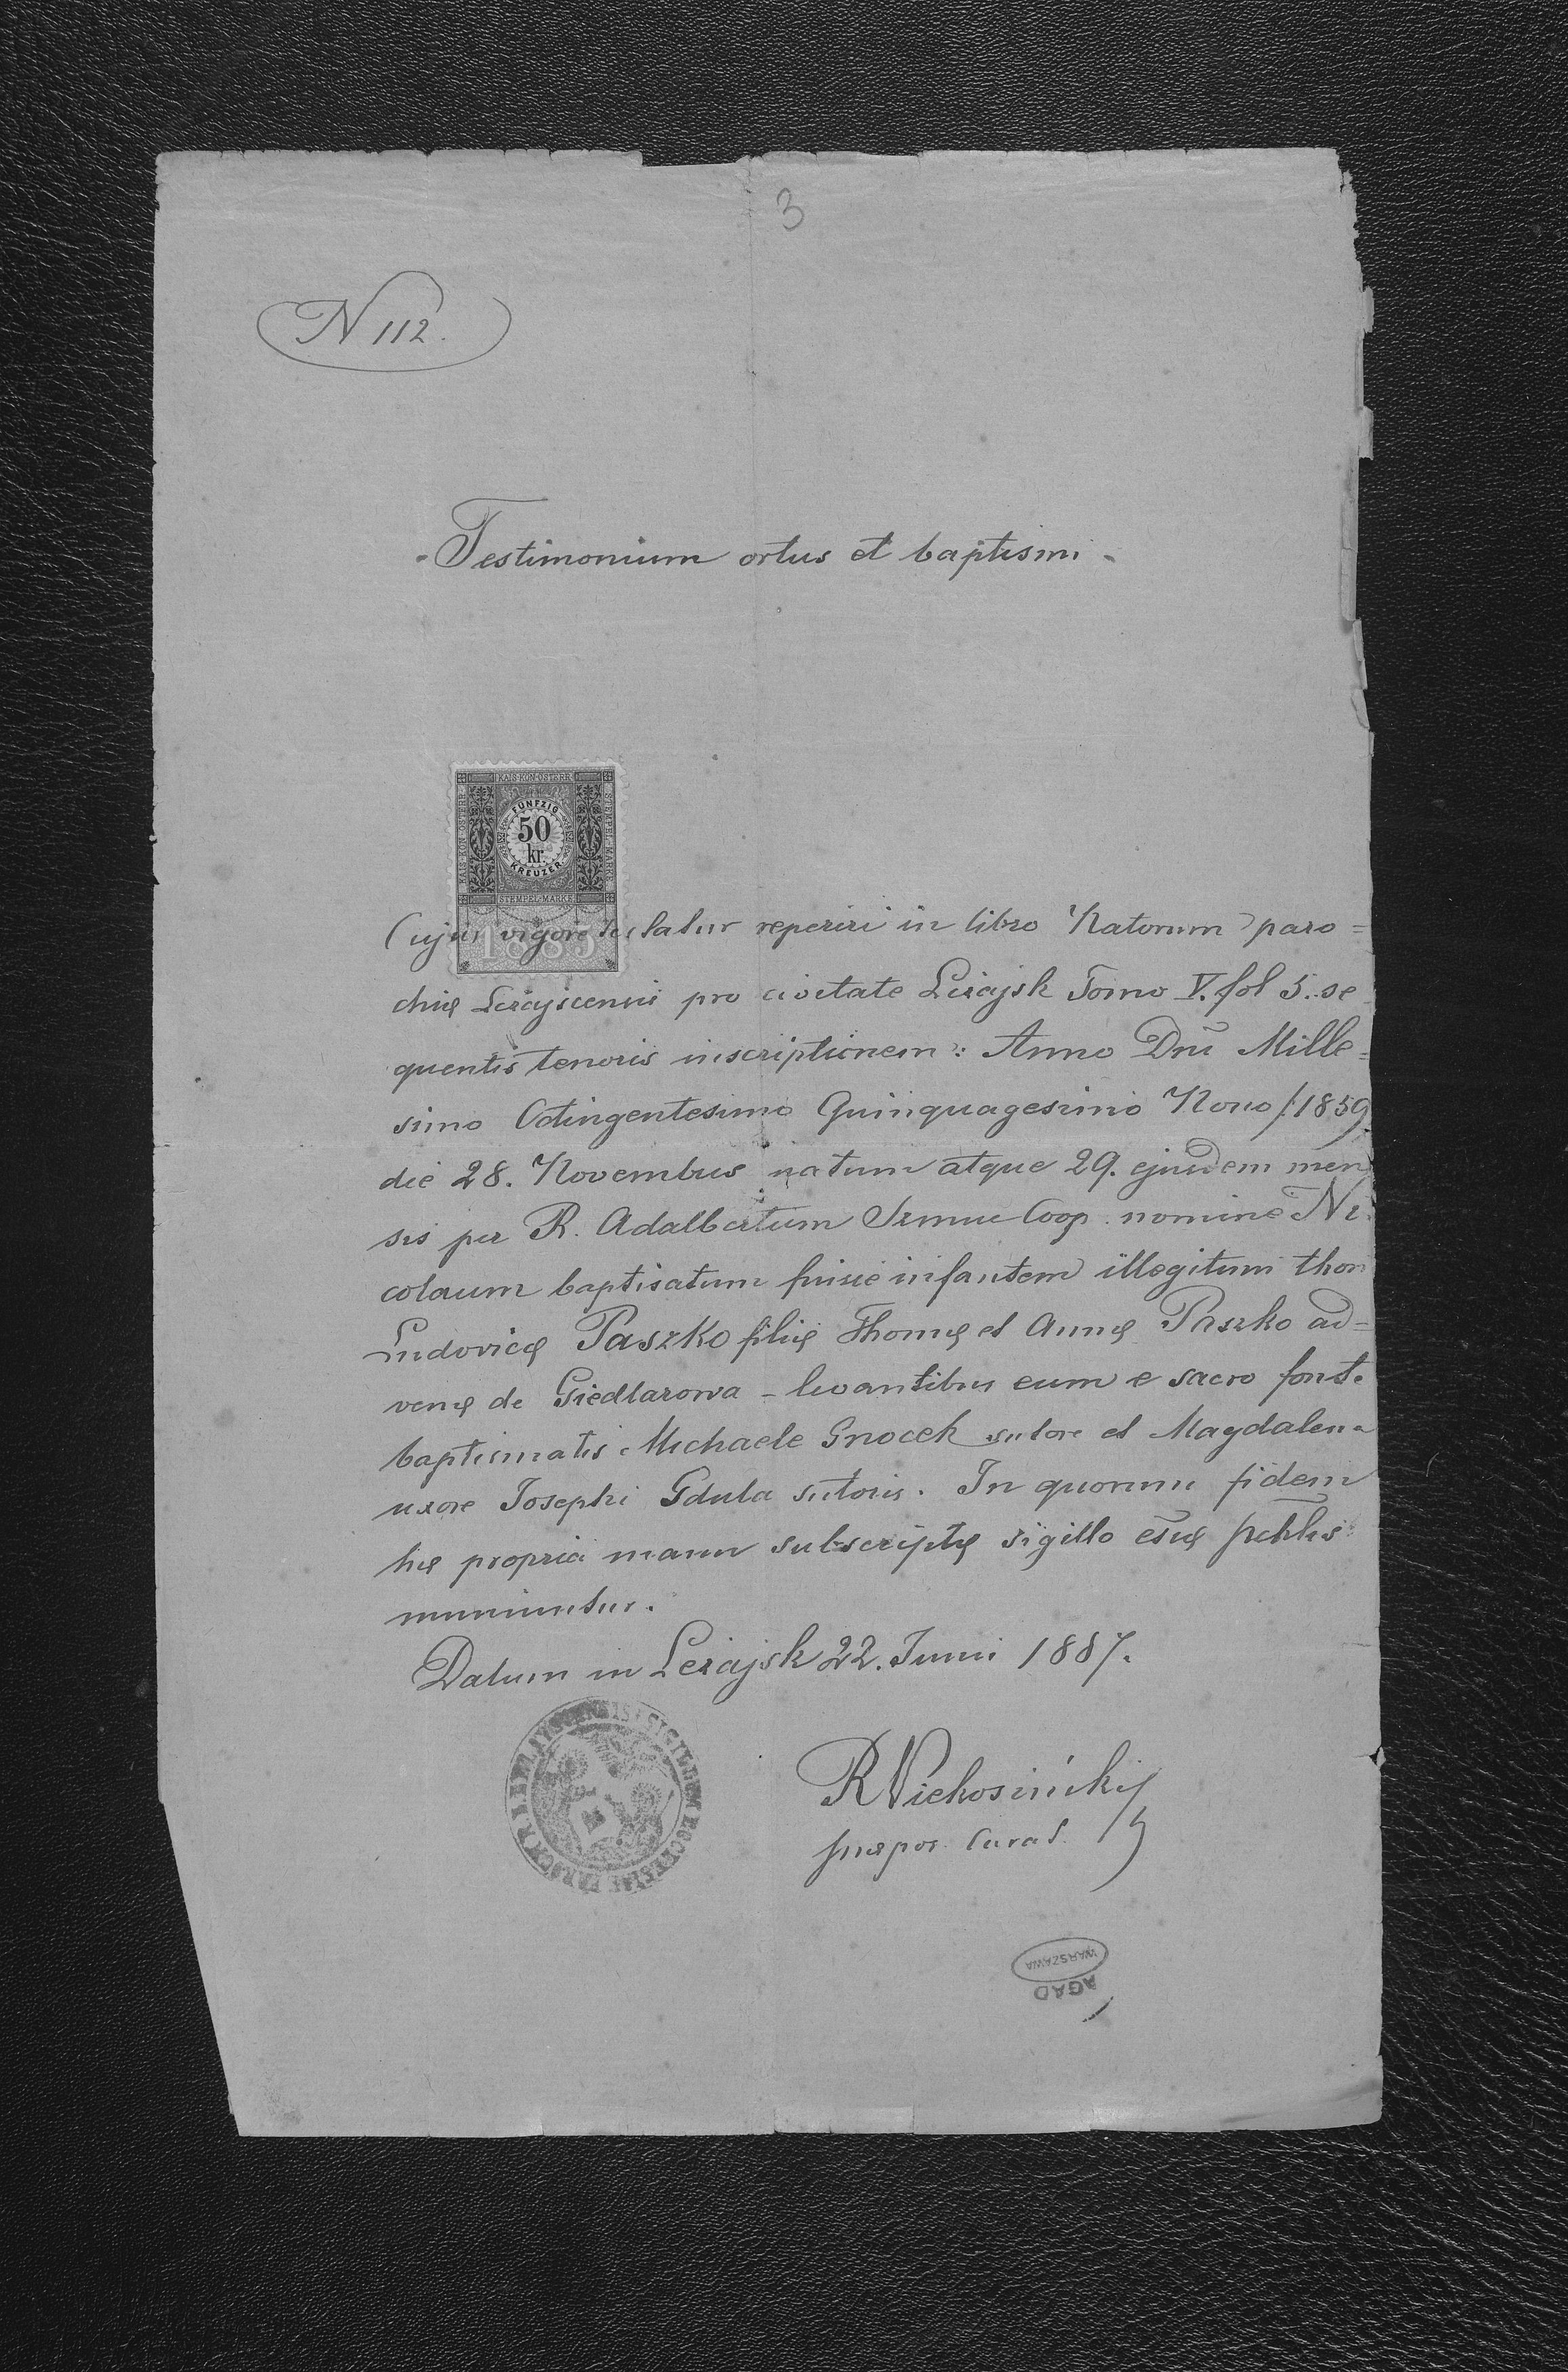 3
N 112.
- Testimonium ortus et baptismi -
KAIS. KÖN. ÖSTERR.
STEMPEL-MARKE
FÜNFZIG
50
kr.
KREUZER
STEMPEL-MARKE
1885
Cujus vigore testatur reperiri in libro Natorum paro=
chię Leżajscensis pro civitate Leżajsk Tomo V. fol 5. se
quentis tenoris inscriptionem: Anno Dni Mille=
simo Octingentesimo Quinquagesimo Nono /:1859
die 28. Novembris natum atque 29. ejusdem men
sis per R. Adalbertum Coop. nomine Ni
colaum baptisatum fuisse infantem illegitimi thori
Ludovicę Paszko filię Thomę et Annę Paszko ad=
venę de Giedlarowa - levantibus eum e sacro fonte
baptismatis Michaele Gnocek sutore et Magdalena
uxore Josephi Gdula sutoris. In quorum fidem
hę propria manu subscriptę sigillo eccę
muniuntur.
Datum in Leżajsk 22. Junii 1887.
SIGILLUM ECCLESIAE PAROCH. R. L. LEZAJSCENSIS
praepos. Curat.
WARSZAWA
AGAD